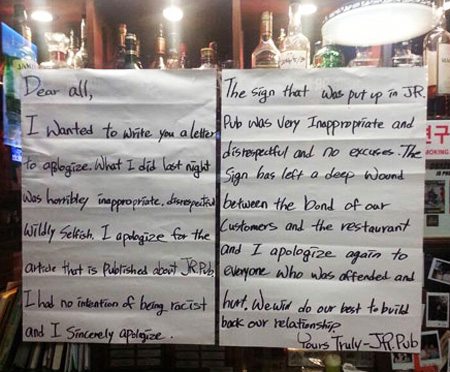 Dear all,
I wanted to write you a letter
to apologize. What I did last night
was horribley inappropriate, disrespected
Wildly Selfish. I apologize for the
article that is published about JR.Pub
I had no intention of being racist
and I Sincerely apologize.
The sign that was put up in JR.
Pub was very Inappropriate and
disrespectful and no excuses. The
Sign has left a deep wound
between the bond of our
Customers and the restaurant
and I apologize again to
everyone who was offended and
hurt. We will do our best to build
back our relationship
Yours Truly-JR.Pub
연구